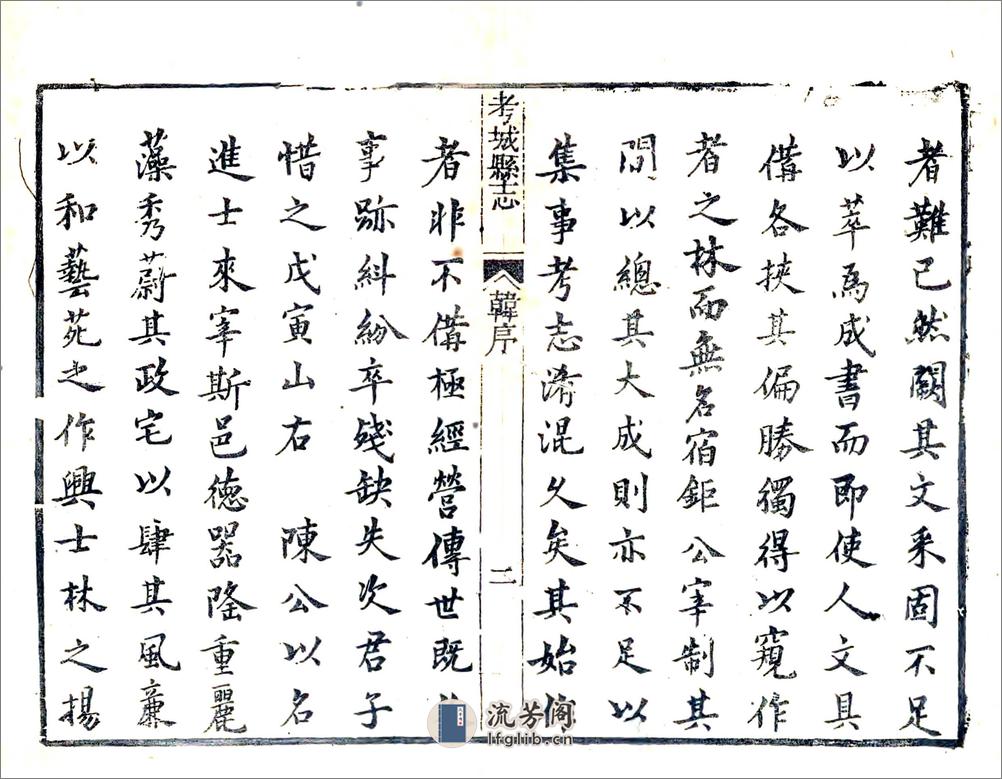 者難已然闕其文采固不足
以萃爲成書而即使人文具
備各挾其偏勝獨得以窺作
者之林而無名宿鉅公宰制其
間以總其大成則亦不足以
集事考志淆混久矣其始脩
考城縣志
韓序
二
者非不備極經營傳世既
事跡糾紛卒殘缺失次君子
惜之戊寅山右 陳公以名
進士來宰斯邑德器隆重麗
藻秀蔚其政宅以肆其風廉
以和藝苑之作興士林之揚
流芳阁
lfglib.cn